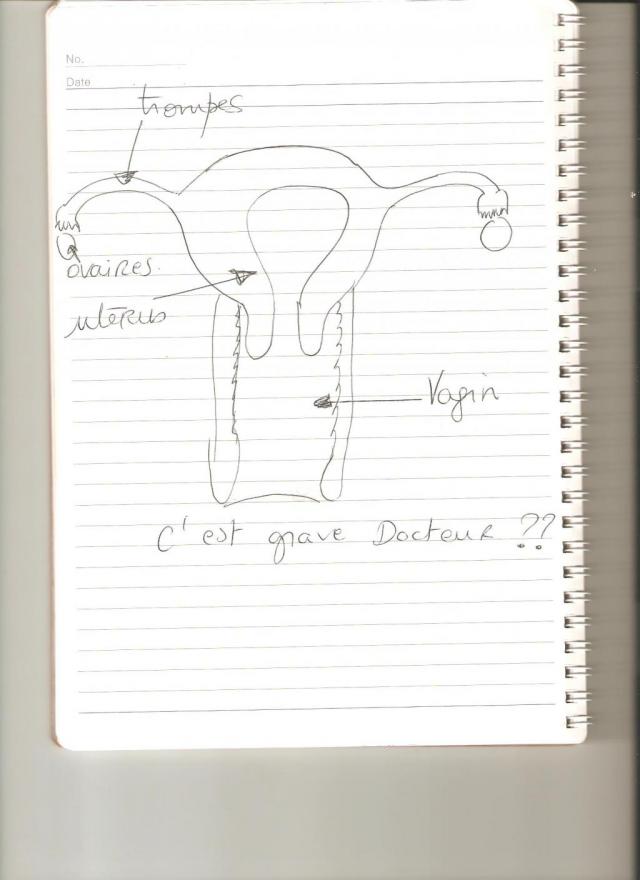 No.
Date
trompes
ovaires.
utérus
Vagin
C'est grave Docteur ??